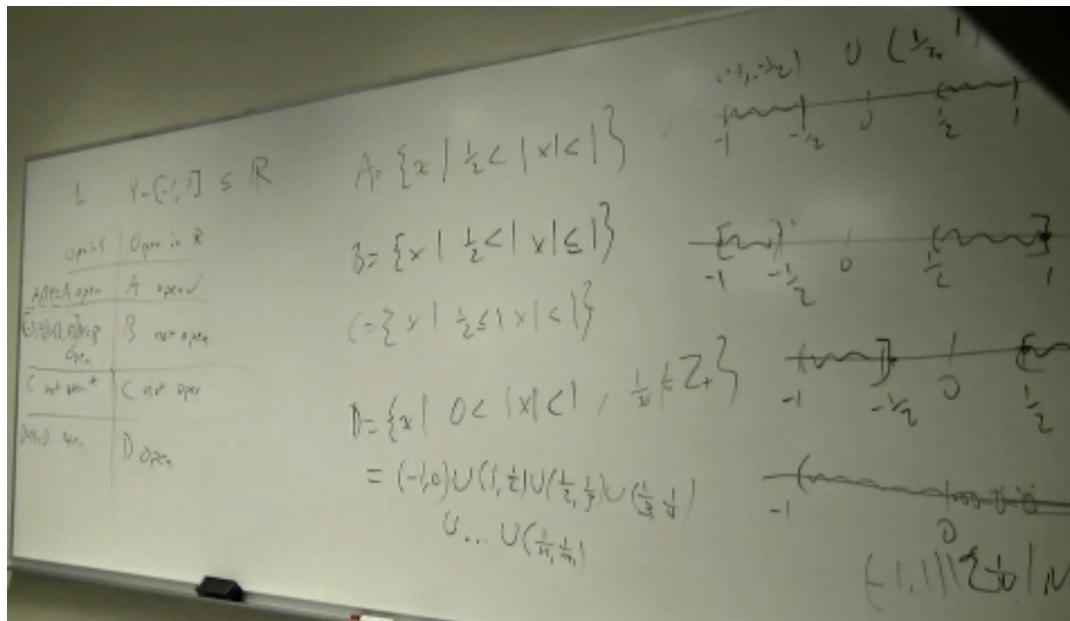 1 Y=[-1,1] ⊆ ℝ
open in Y | Open in R
A∩Y=A open | A open ✓
B not open
open
C not open | C not open
D∩Y=D open | D open
A= {x | 1/2 < |x| < 1}
B= {x | 1/2 < |x| ≤ 1}
C= {x | 1/2 ≤ |x| < 1}
D= {x | 0 < |x| < 1, 1/x ∉ Z+}
= (-1,0) ∪ (1,1/2) ∪ (1/2,1/3) ∪ (1/3,1/4)
∪ ... ∪ (
(-1,-1/2) ∪ (1/2, 1
-1 -1/2 0 1/2 1
-1 -1/2 0 1/2 1
-1 -1/2 0 1/2
-1 0
(-1,1)\{1/n | N